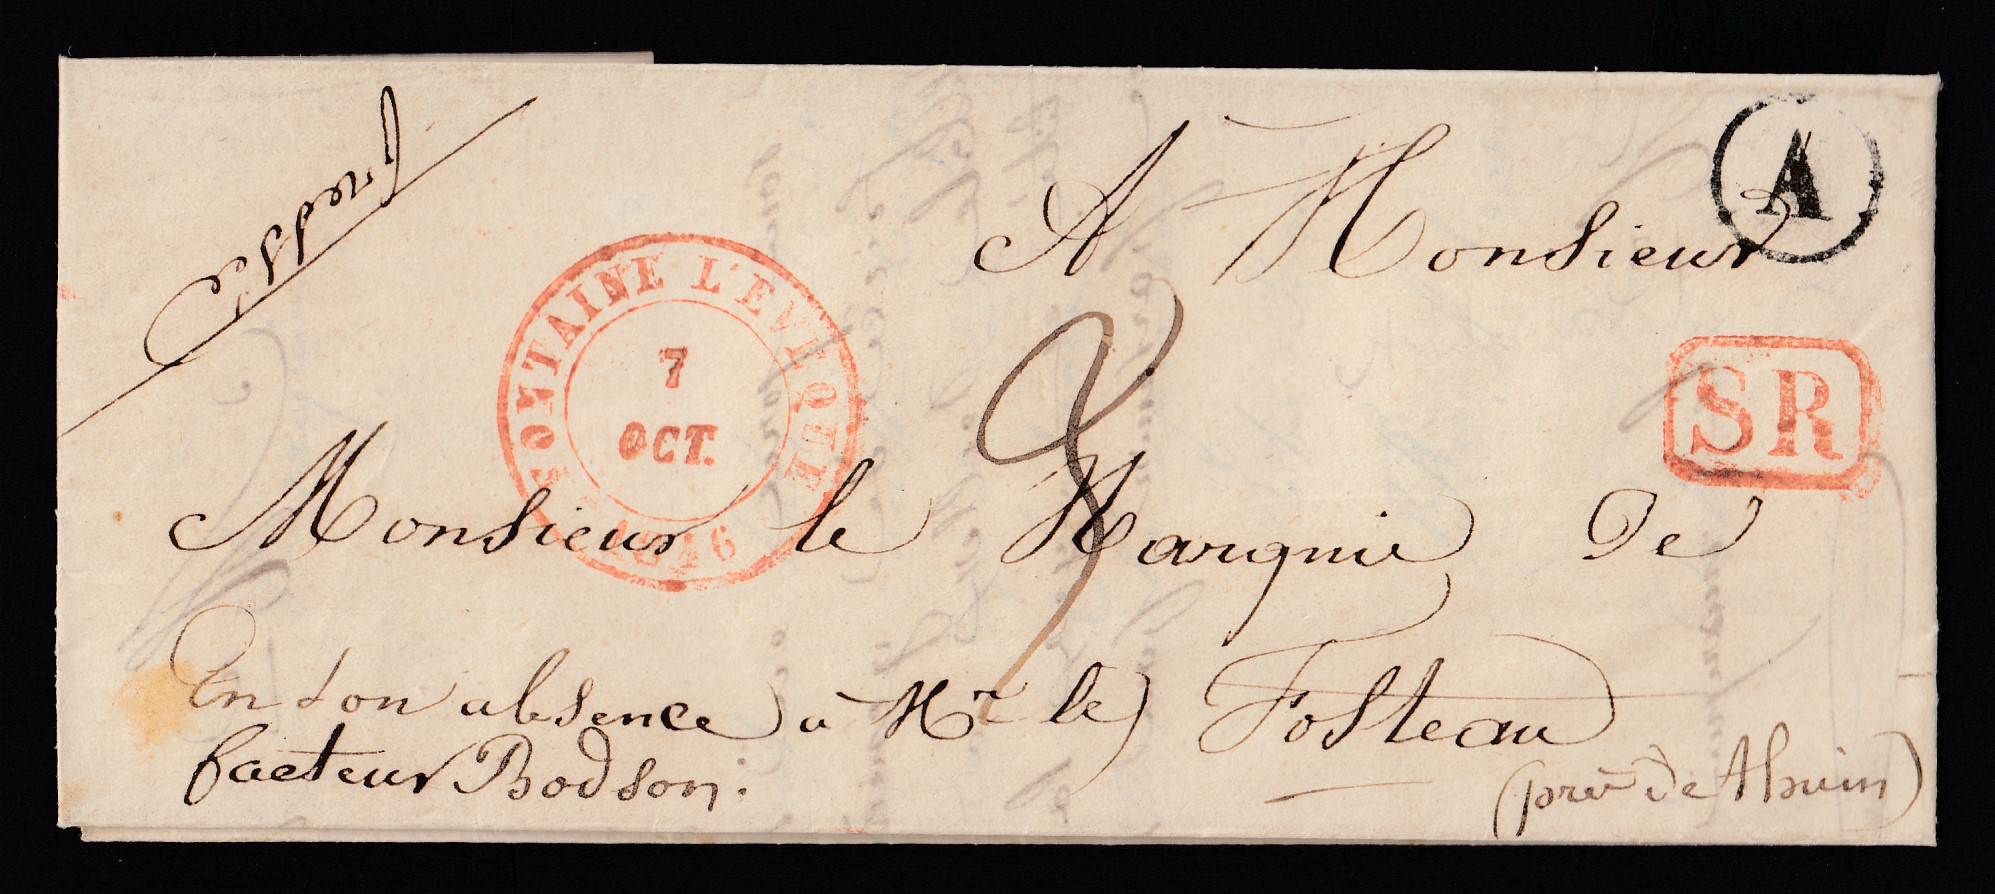 pressée
A Monsieur
A
FONTAINE L'EVEQUE
7
OCT.
1846
SR
Monsieur le Marquis De
Fosteau
(près de Thuin)
En son absence à Mr le
facteur Bodson.